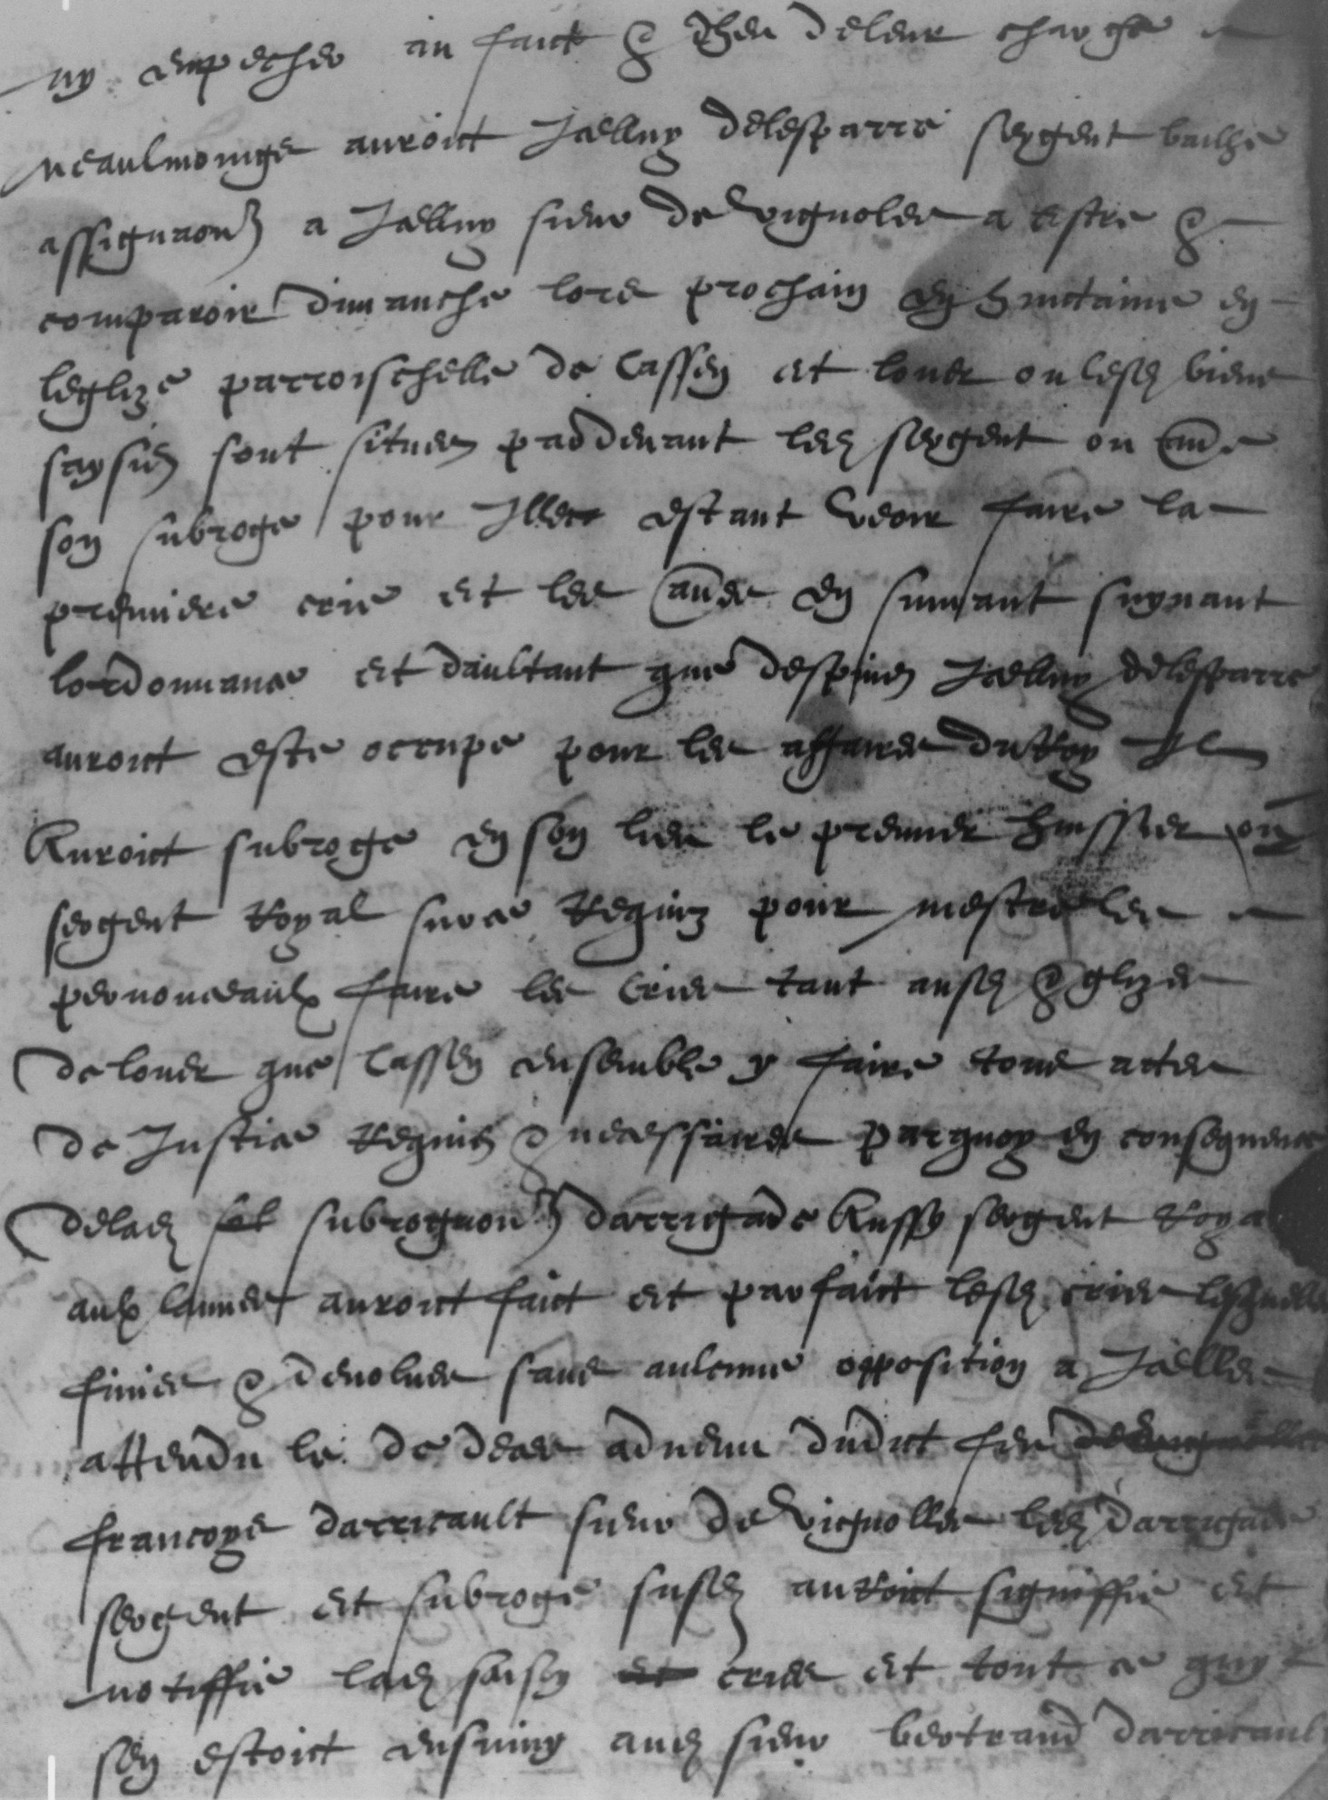 ny empecher au faict & deu de leur charge
neaulmoingz auroict Icelluy delesparre sergent bailhe
assignaon a Icelluy sieur de vignoles a estre &
comparoir dimanche lors prochain en suictaine en
leglize parroischelle de Cassen et louer ou lesd biens
saysiz sont situez pardevant led sergent ou aultre
son subroge pour Illec estant veoir faire la
premiere crie et les aultres en suivant suyvant
lordonnance et daultant que despuis Icelluy delesparre
auroict este occupe pour les affaires du Roy Il
Auroict subroge en son lieu le premier huissier ou
sergent Royal sur ce Requiz pour mestre les
pannonceaulx faire les Cries tant ausd esglizes
de louer que Cassen ensemble y faire tous actes
de Justice Requis & necessaires Parquoy en consequence
de lad subrogaon darrigade Aussy sergent Royal
aux lannes auroict faict et parfaict lesd cries lesquelles
finies & devolues sans aulcune opposition a Icelles
attendu le de deces advenu dudict feu
francoys darricault sieur de vignolles led darrigade
sergent et subroge susd auroict signiffie et
notiffie lad saisy cries et tout ce quy
sen estoict ensuivy aud sieur bertrand darricault